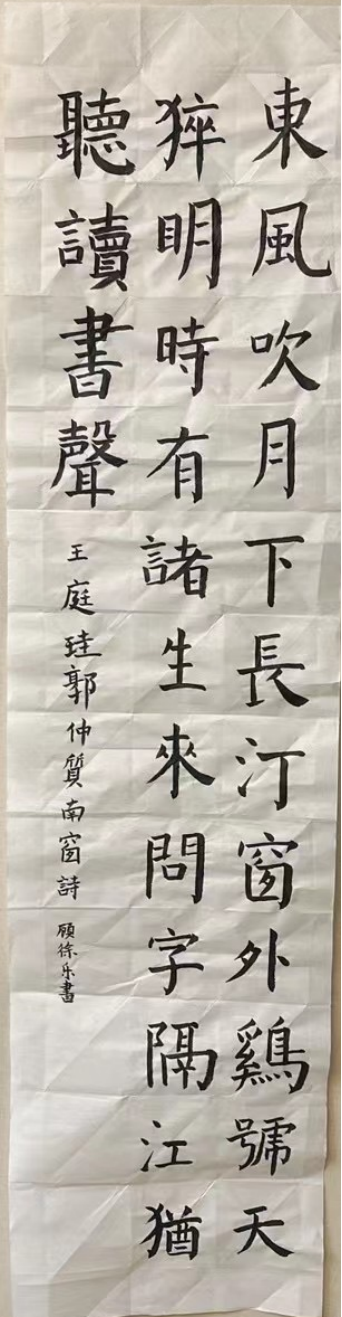 東風吹月下長汀窗外鷄號天
猝明時有諸生來問字隔江猶
聽讀書聲
王庭珪郭仲質南窗詩
顾徐乐書